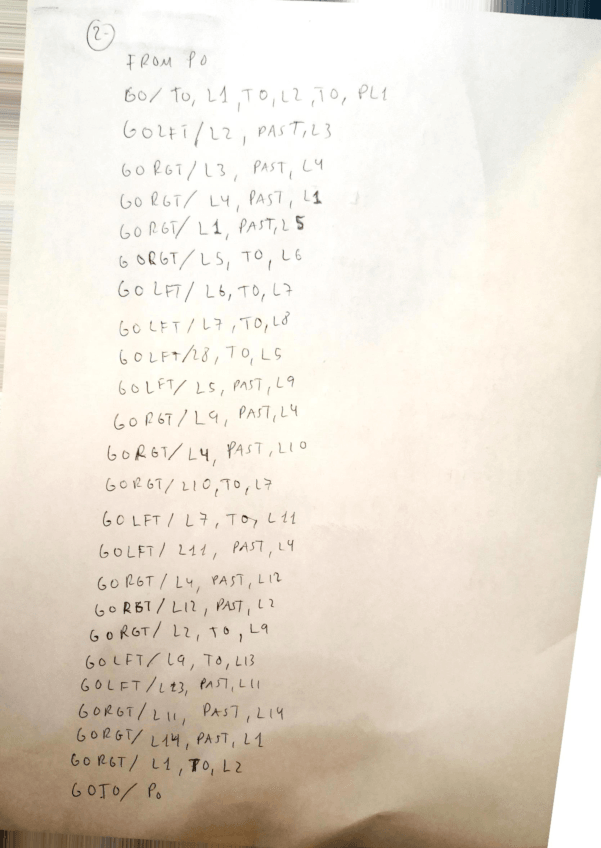 2.
FROM PO
GO/ TO, L1, TO, L2, TO, PL1
GOLFT/L2, PAST, L3
GORGT/L3, PAST, L4
GORGT/ L4, PAST, L1
GORGT/ L1, PAST, L5
GORGT/ L5, TO, L6
GOLFT/ L6, TO, L7
GOLFT/L7, TO, L8
GOLFT/L8, TO, L5
GOLFT/ L5, PAST, L9
GORGT/ L9, PAST, L4
GORGT/ L4, PAST, L10
GORGT/ L10, TO, L7
GOLFT/ L7, TO, L11
GOLFT/ L11, PAST, L4
GORGT/ L4, PAST, L12
GORGT/ L12, PAST, L2
GORGT/ L2, TO, L9
GOLFT/ L9, TO, L13
GOLFT/L13, PAST, L11
GORGT/ L11, PAST, L14
GORGT/ L14, PAST, L1
GORGT/ L1, TO, L2
GOTO/ PO